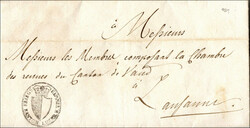 à
Messieurs
Messieurs les Membres, composant la Chambre
des revenus du Canton de Vaud
à
Lausanne